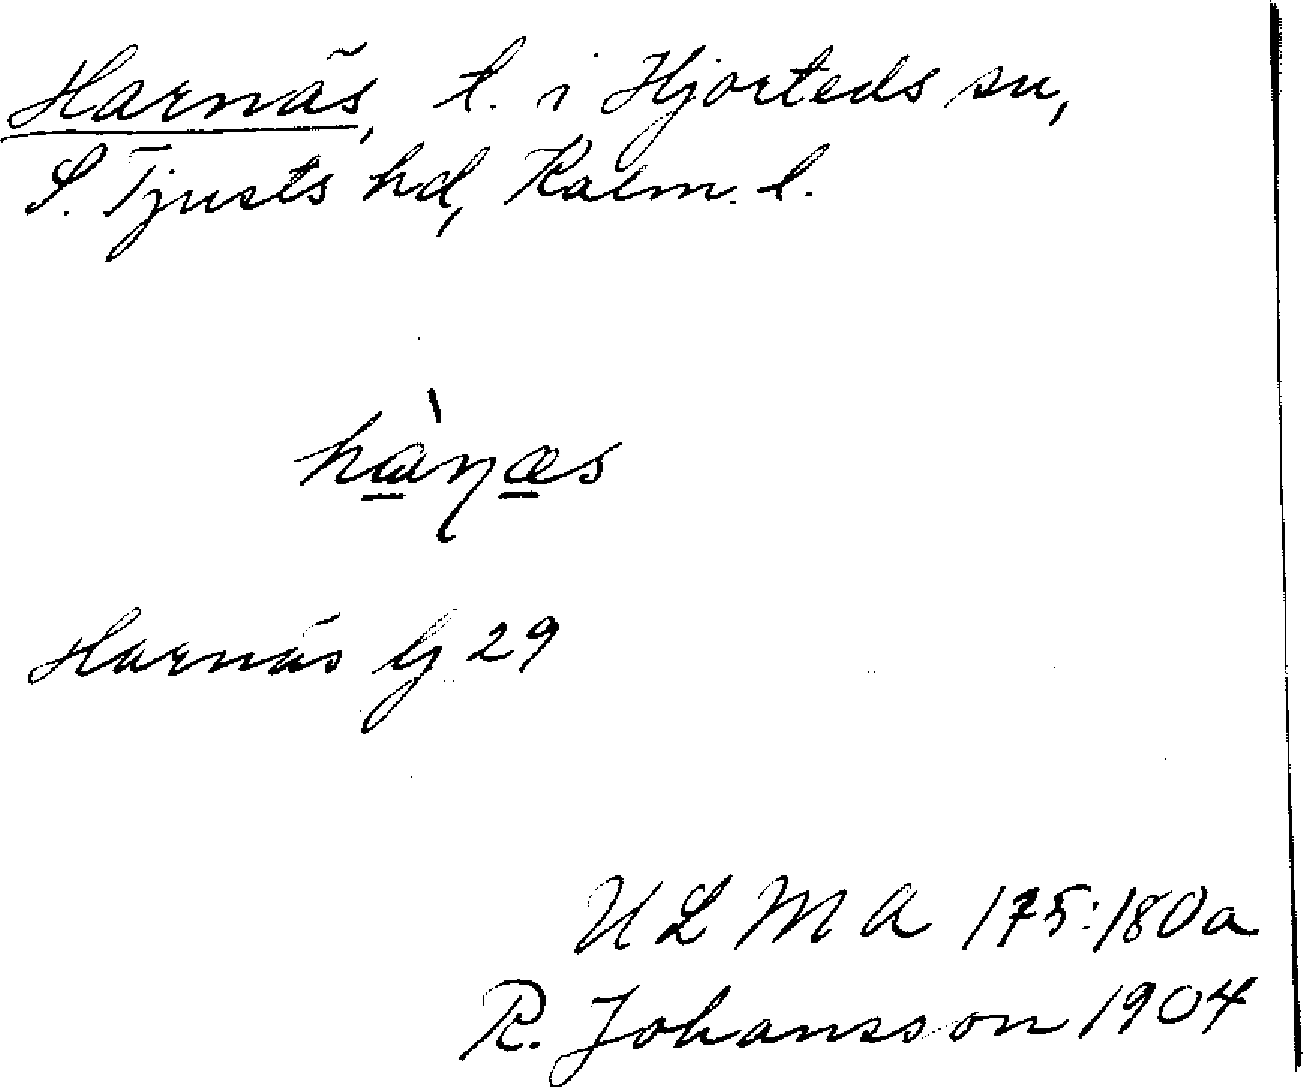 Harnäs, t. i Hjorteds sn,
S. Tjusts hd, Kalm. l.
hàɳæs
Harnäs Gj 29
ULMA 175:180a
R. Johansson 1904